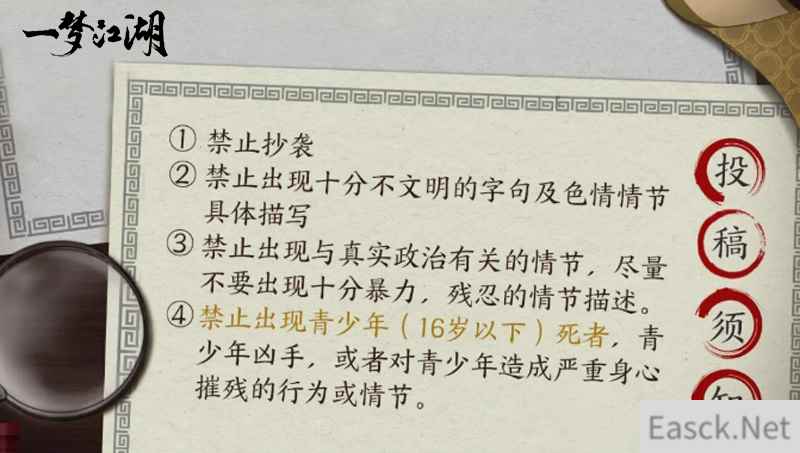 一梦江湖
① 禁止抄袭
② 禁止出现十分不文明的字句及色情情节
具体描写
③ 禁止出现与真实政治有关的情节，尽量
不要出现十分暴力，残忍的情节描述。
④ 禁止出现青少年（16岁以下）死者，青
少年凶手，或者对青少年造成严重身心
摧残的行为或情节。
投
稿
须
知
Easck.Net